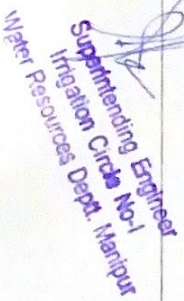 Superintending Engineer
Irrigation Circle No-I
Water Resources Deptt. Manipur